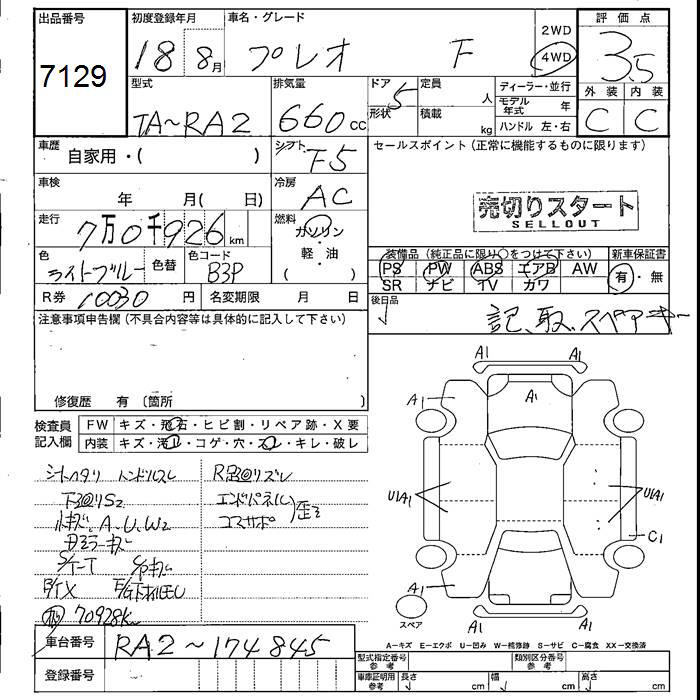 出品番号 初度登録年月 車名・グレード 2WD 評価点
7129 18 8月 プレオ F 4WD 3.5
型式 排気量 ドア 定員 ディーラー・並行 外装 内装
TA~RA2 660cc 5 人 モデル年式 年 C C
形状 積載 kg ハンドル 左・右
車歴 自家用・( ) シフト F5 セールスポイント (正常に機能するものに限ります)
車検 年 月( 日) 冷房 AC
売切りスタート
SELLOUT
走行 7万0千926km 燃料 ガソリン・軽・油 ( )
色 ライトブルー 色替 色コード B3P
装備品 (純正品に限り○をつけて下さい) 新車保証書
PS PW ABS エアB AW 有・無
SR ナビ TV カワ
R券 10030円 名変期限 月 日
後日品 記、取、スペアキー
注意事項申告欄 (不具合内容等は具体的に記入して下さい)
修復歴 有 〔箇所 〕
検査員記入欄 FW キズ・飛石・ヒビ割・リペア跡・X要
内装 キズ・汚レ・コゲ・穴・スレ・キレ・破レ
エンドパネル
コアサポ 歪ミ
A、U、W2
70928K
A1 A1
A1 A1 A1
U1A1 U1A1
C1
A1 A1
A1
スペア
A-キズ E-エクボ U-凹み W-補修跡 S-サビ C-腐食 XX-交換済
車台番号 RA2~174845
登録番号
型式指定番号 参考 類別区分番号 参考
車庫証明用 参考 長さ cm 幅 cm 高さ cm